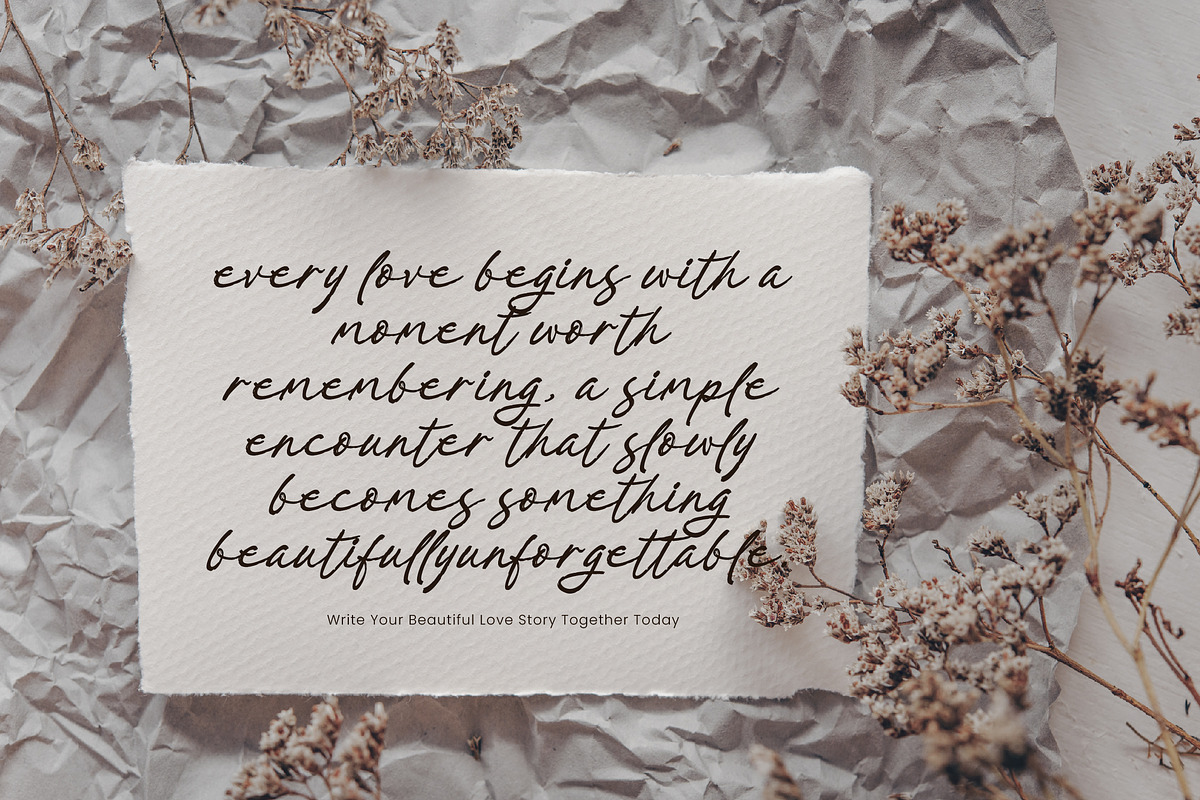 every love begins with a
moment worth
remembering, a simple
encounter that slowly
becomes something
beautifullyunforgettable
Write Your Beautiful Love Story Together Today